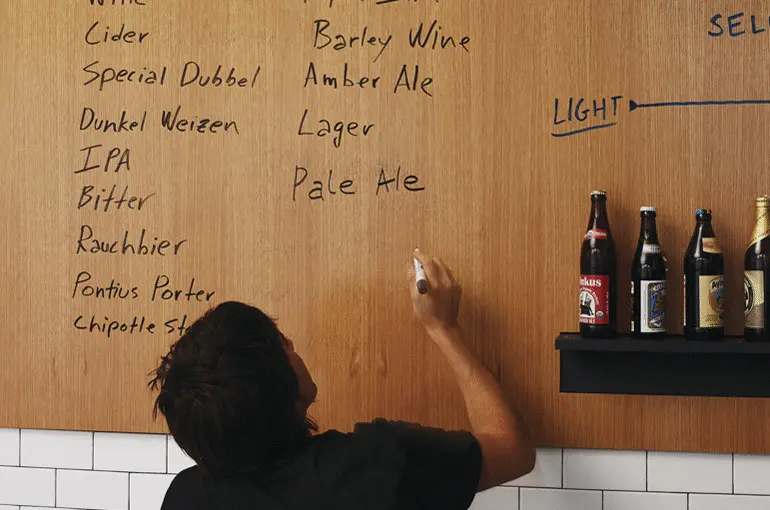 Wine
Cider
Special Dubbel
Dunkel Weizen
IPA
Bitter
Rauchbier
Pontius Porter
Chipotle St
Barley Wine
Amber Ale
Lager
Pale Ale
SEL
LIGHT
nkus